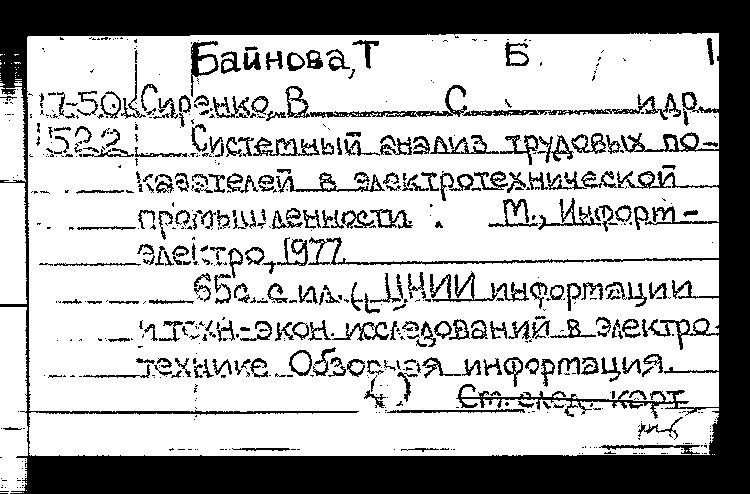 Байнова, Т Б 1.
17-50к Сиренко, В С и др.
1522 Системный анализ трудовых по-
казателей в электротехнической
промышленности. М., Информ-
электро, 1977.
65с. с ил. (ЦНИИ информации
и техн.-экон. исследований в электро-
технике Обзорная информация.
См. след. карт